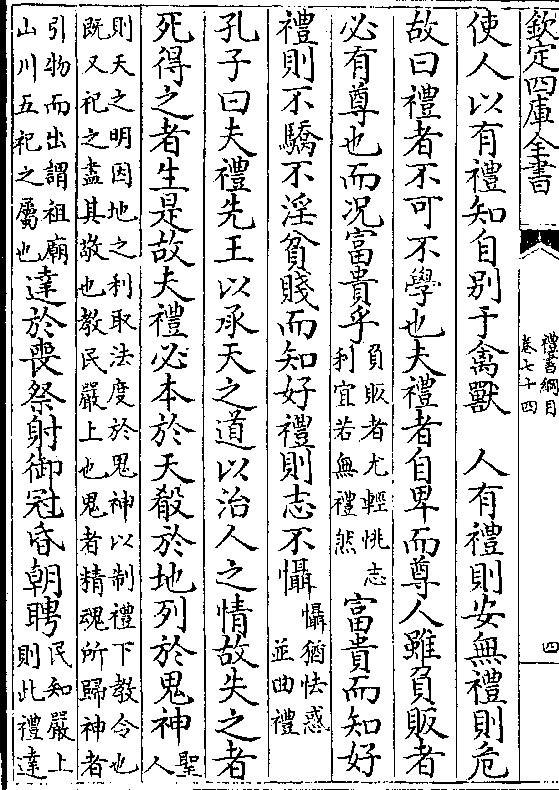 欽定四庫全書
禮書綱目
卷七十四
四
使人以有禮知自别于禽獸　人有禮則安無禮則危
故曰禮者不可不學也夫禮者自卑而尊人雖負販者
必有尊也而况富貴乎
負販者尤輕恌志
利宜若無禮然
富貴而知好
禮則不驕不淫貧賤而知好禮則志不懾
懾猶怯惑
並曲禮
孔子曰夫禮先王以承天之道以治人之情故失之者
死得之者生是故夫禮必本於天殽於地列於鬼神
聖
人
則天之明因地之利取法度於鬼神以制禮下教令也
既又祀之盡其敬也教民嚴上也鬼者精魂所歸神者
引物而出謂祖廟
山川五祀之屬也
達於喪祭射御冠昏朝聘
民知嚴上
則此禮達